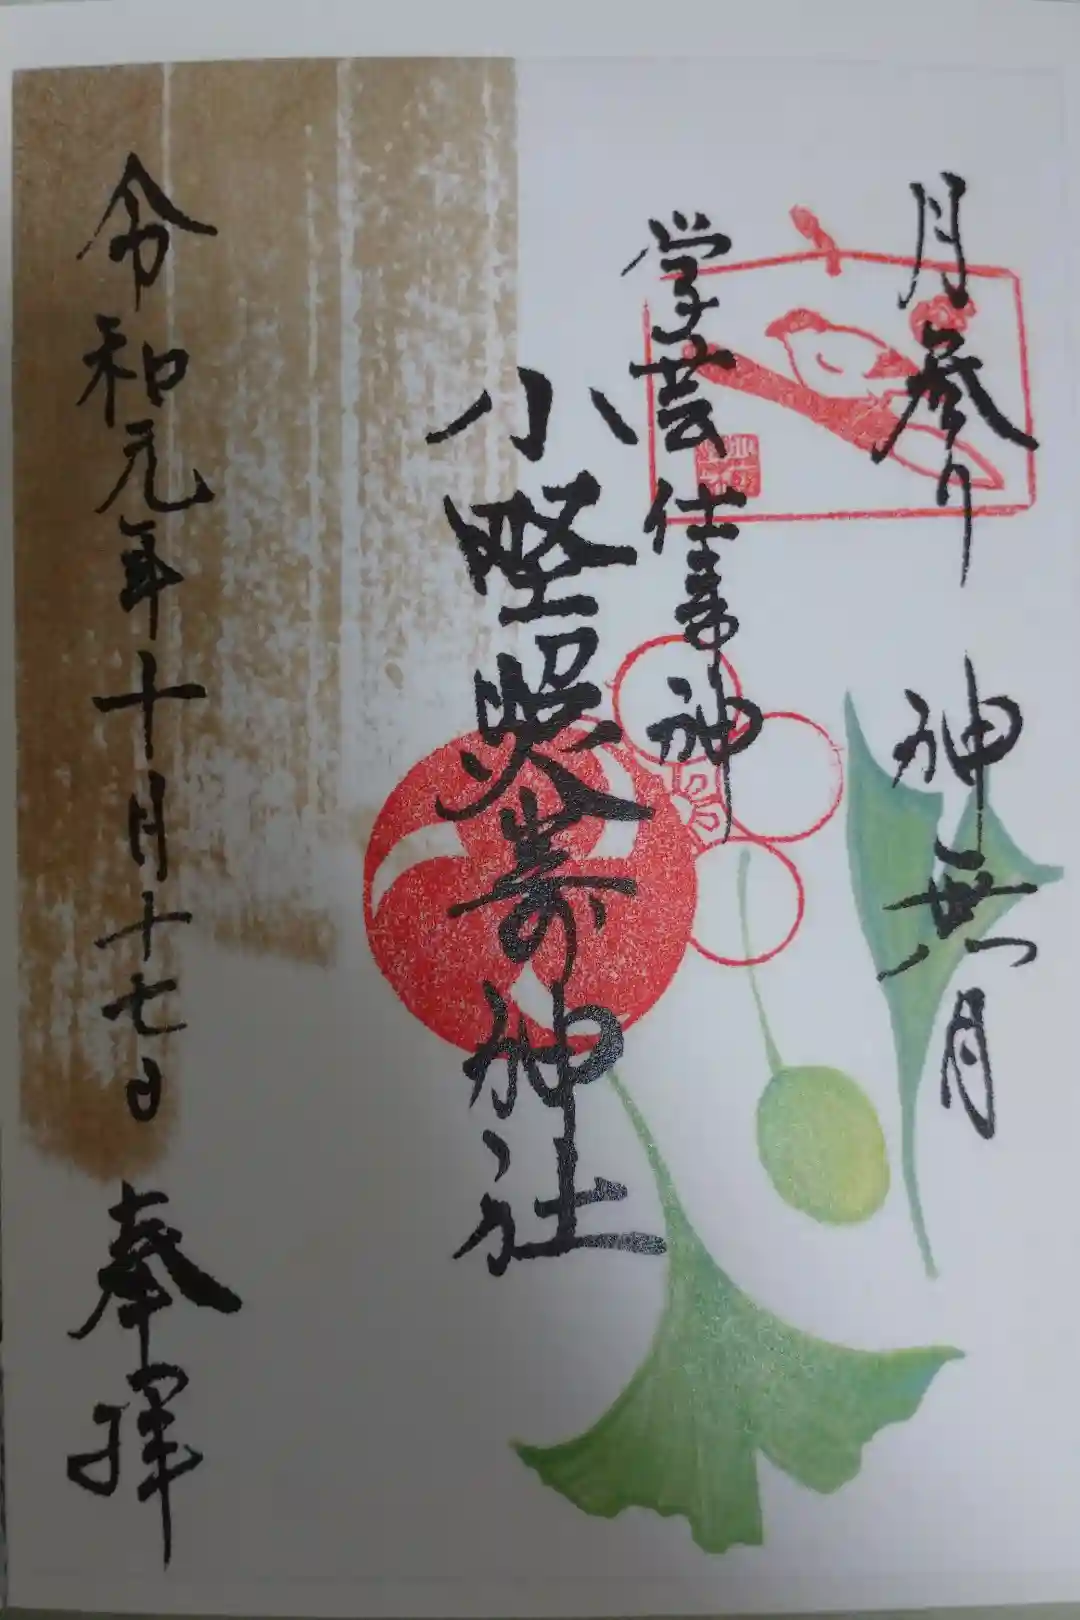 月参り 神無月
学芸仕事神
小野照崎神社
令和元年十月十七日 奉拝